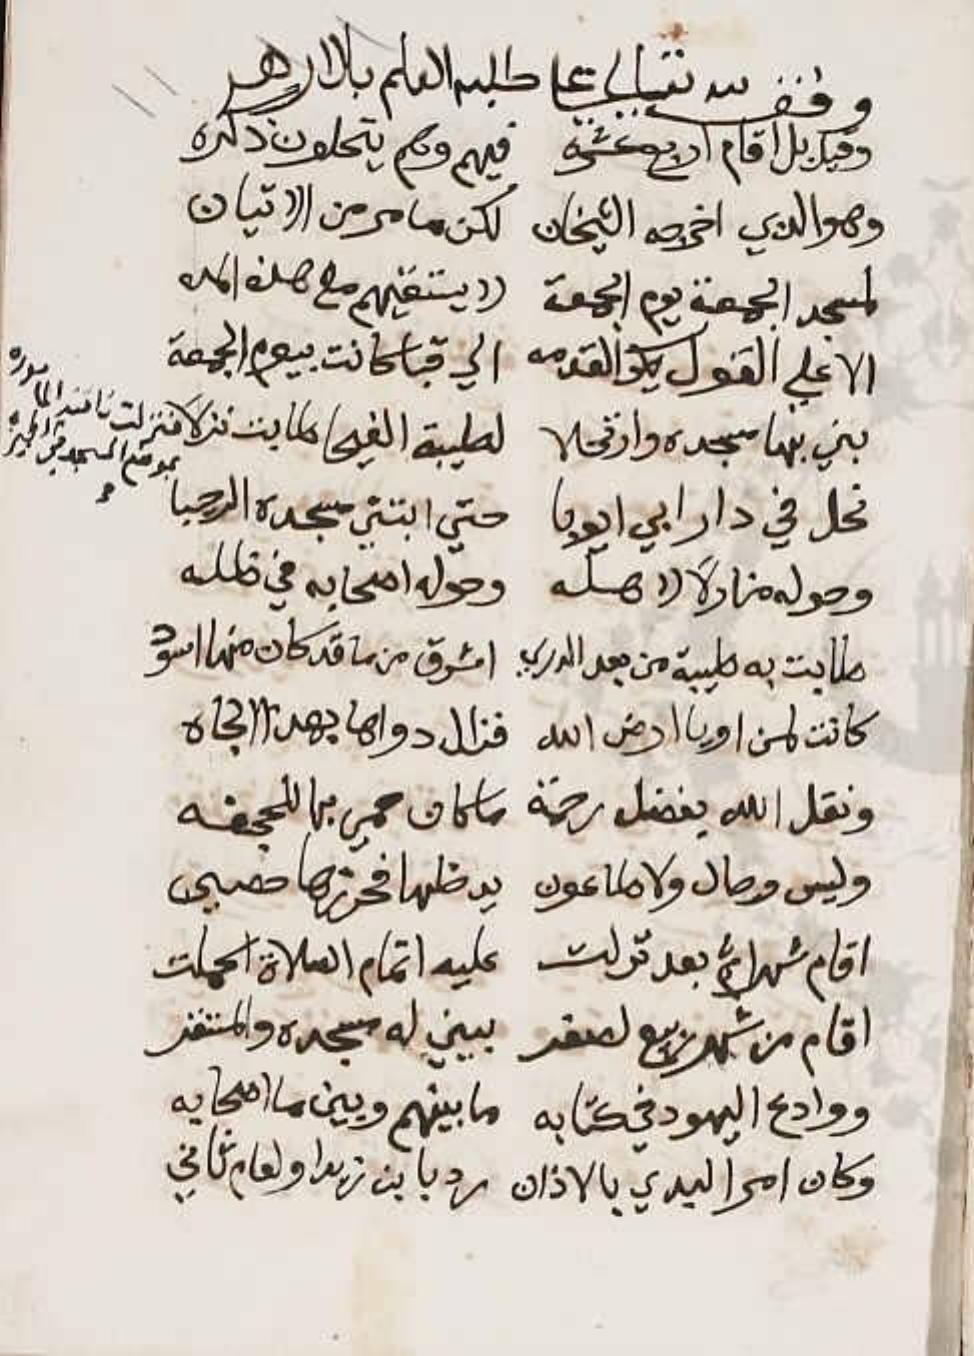 وقف لله تعالى على طلبة العلم بالازهر
وقيل بل اقام اربع عشرة فيهم وهم ينتحلون ذكره
وهو الذي اخرجه الشيخان لكن ما مر من الاتيان
لمسجد الجمعة يوم الجمعة لا يستقيم مع هذه المده
الا علي القول بكون القدمه الي قبا كانت بيوم الجمعة
بني بها مسجده وارتحلا لطيبة الفيحا طابت نزلا
فبركت ناقته المامورة
بموضع المسجد في الظهيرة
فحل في دار ابي ايوبا حتي ابتني مسجده الرحيبا
وحوله منازلا لاهله وحوله اصحابه في ظله
طابت به طيبة من بعد الردي اشرق من ما قد كان منها اسودا
كانت لمن اوبا ارض الله فزال دواها بهذا الجاه
ونقل الله بفضل رحمة ما كان من حمي بها للجحفه
وليس دجال ولا طاعون يدخلها فحرزها حصين
اقام شهرا ثم بعد نزلت عليه اتمام الصلاة اكملت
اقام من شهر ربيع لصفر يبني له مسجده والمستقر
ووادع اليهود في كتابه ما بينهم وبين ما اصحابه
وكان امر البدي بالاذان رويا بن زيد او لعام ثاني